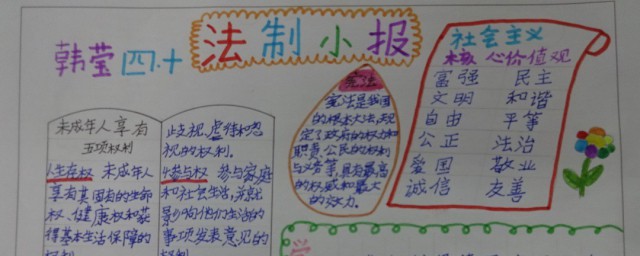 韩莹 四.十
法制小报
未成年人享有
五项权利
1生存权 未成年人
享有其固有的生命
权、健康权和获
得基本生活保障的
歧视、虐待和忽
视的权利。
4参与权 参与家庭
和社会生活,并就
影响他们生活的
事项发表意见的
宪法
宪法是我国
的根本大法,规
定了政府的权力和
职责,公民的权利
与义务等,具有最高
的权威和最大
的效力。
社会主义
核心价值观
富强 民主
文明 和谐
自由 平等
公正 法治
爱国 敬业
诚信 友善